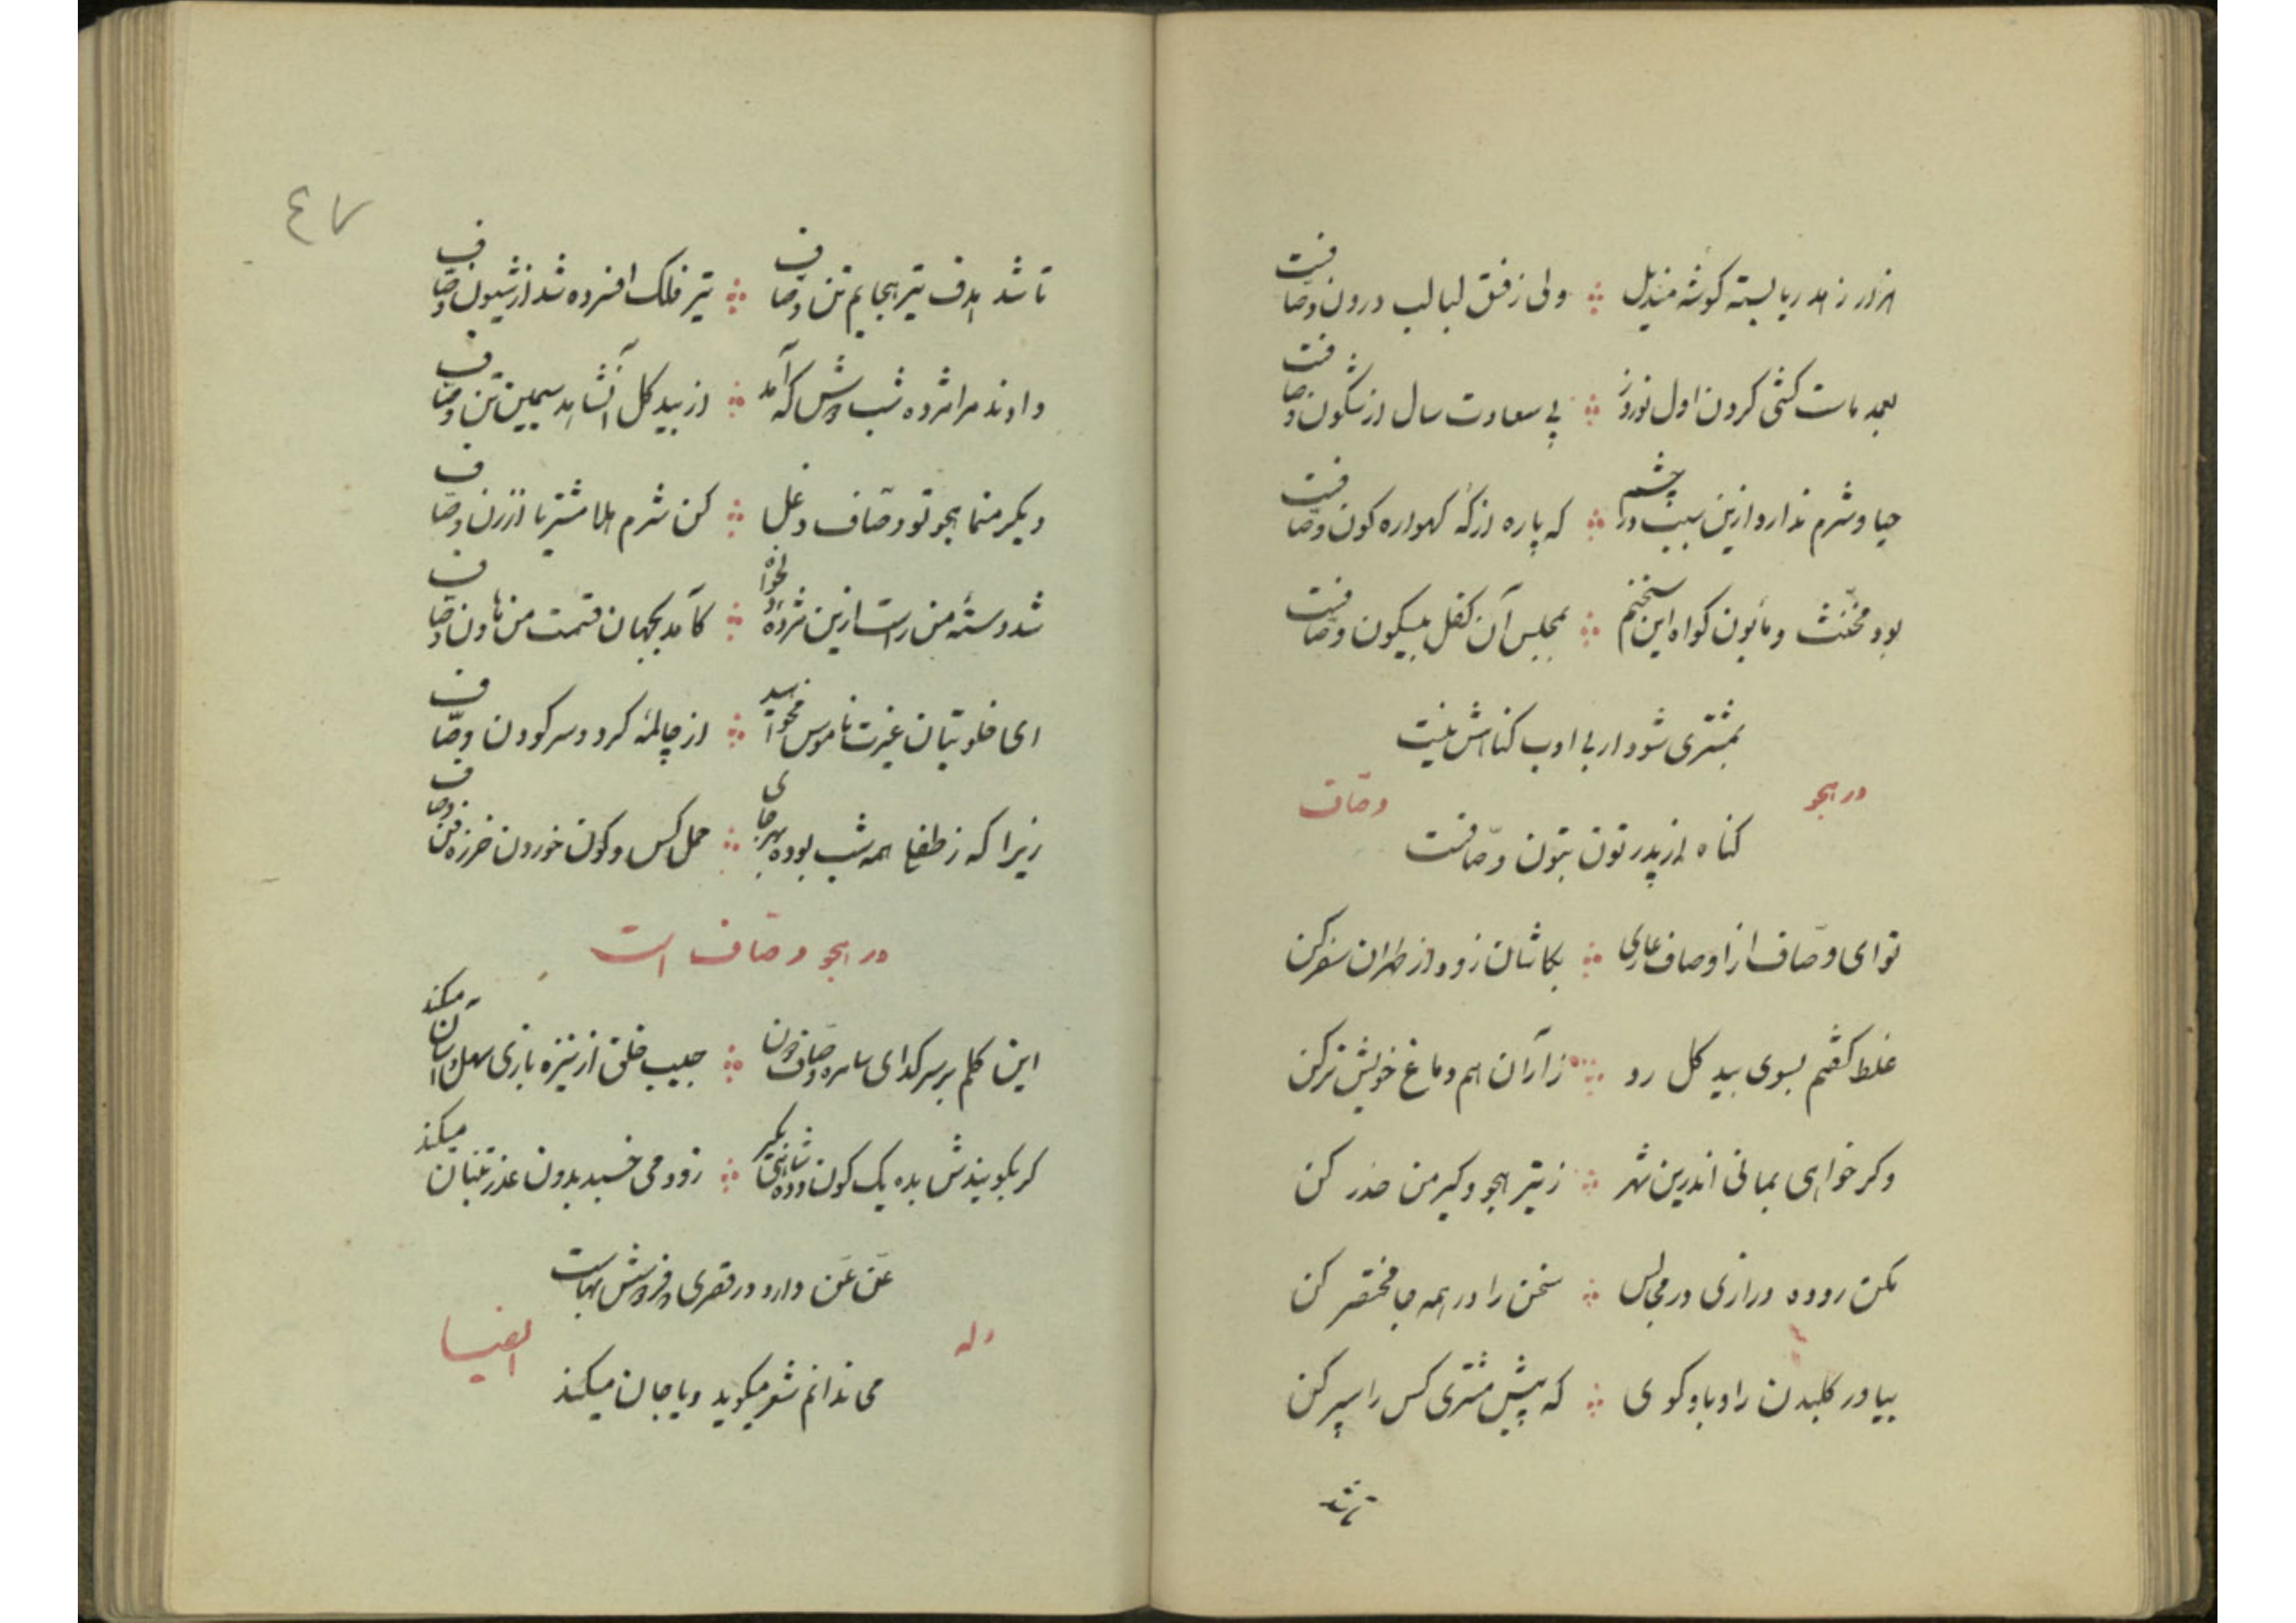 ز زهد ریا بسته گوشه مندیل ولی ز فسق لبالب درون وصّافست
کشتی کردن اول نوروز پی سعادت سال از شکون وصّافست
حیا و شرم ندارد ازین سبب در چشم که پاره از که کهواره کون وصّافست
بود مخنّث و مأبون کواه این سخنم بمجلس آن کفل نیلگون وصّافست
بمشتری شود ار بی ادب کناهش نیست
در هجو وصّاف
کناه از پدر تون بتون وصّافست
تو ای وصّاف از اوصاف عاری بکاشان زود از طهران سفر کن
غلط کفتم بسوی بید کل رو ز آران هم دماغ خویش تر کن
وکر خواهی بمانی اندرین شهر ز تیر هجو و کیر من حذر کن
مکن روده درازی در مجالس سخن را در همه جا مختصر کن
بیاور کلبدن را و باو کوی که پیش مشتری کس را سپر کن
تا شد
٤٧
تا شد هدف تیر هجایم تن وصّاف تیر فلک افسرده شد از شیون وصّاف
دادند مرا مژده شب دوش که آمد از بید کل آن شاهد سیمین تن وصّاف
دیکر منما هجو تو وصّاف دغل کن شرم هلا مشتریا از زن وصّاف
شد دسته من راست ازین مژده دلخواه کآمد بجهان قسمت من هاون وصّاف
ای خلوتیان غیرت ناموس مخواهید از چاله کرد و سر کودن وصّاف
زیرا که ز طفلی همه شب بوده بهر جای حمل کس و کون خوردن خرزه فن وصّاف
در هجو وصّاف است
این کلم بر سر کدای سامره وصّاف دون جیب خلق از نیزه بازی سهل و آسان میکند
کر بکویندش بده یک کون و ده شاهی بکیر زود می خسبد بدون عذر تنبان میکند
عَن عَن دارد در قصری و فزونش بهاست
وله ایضا
می ندانم شعر میکوید و یا جان میکند